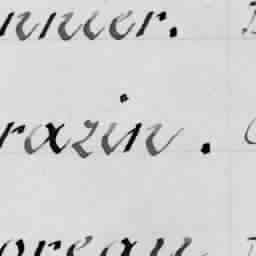 nnier.
razin.
oreau